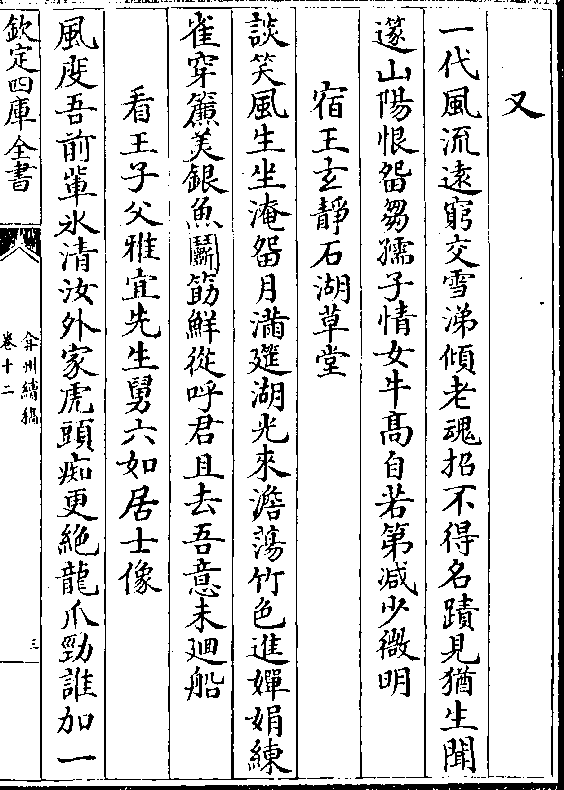 又
一代風流遠窮交雪涕傾老魂招不得名蹟見猶生聞
篴山陽恨留芻孺子情女牛髙自若第減少微明
宿王玄靜石湖草堂
談笑風生坐淹留月滿筵湖光來澹蕩竹色進嬋娟練
雀穿簾美銀魚斸筯鮮從呼君且去吾意未廻船
看王子父雅宜先生舅六如居士像
風度吾前輩氷清汝外家虎頭痴更絶龍爪勁誰加一
欽定四庫全書
弇州續稿
卷十二
三